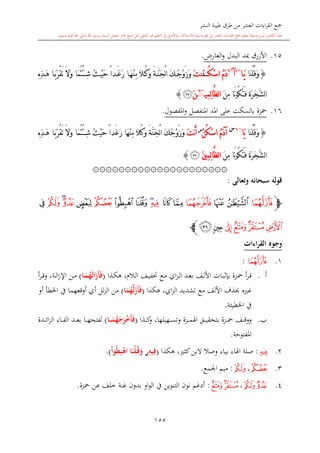 جمع القراءات العشر من طرق طيبة النشر
١٥. الأزرق بمد البدل والعارض.
﴿ وَقُلْنَا يَا آدَمُ اسْكُنْ أَنتَ وَزَوْجُكَ الْجَنَّةَ وَكُلَا مِنْهَا رَغَداً حَيْثُ شِئْتُمَا وَلَا تَقْرَبَا هَذِهِ
الشَّجَرَةَ فَتَكُونَا مِنَ الظَّالِمِينَ ﴾
١٦. حمزة بالسكت على المد المنفصل والمفصول.
﴿ وَقُلْنَا يَا آدَمُ اسْكُنْ أَنتَ وَزَوْجُكَ الْجَنَّةَ وَكُلَا مِنْهَا رَغَداً حَيْثُ شِئْتُمَا وَلَا تَقْرَبَا هَذِهِ
الشَّجَرَةَ فَتَكُونَا مِنَ الظَّالِمِينَ ﴾
قوله سبحانه وتعالى :
﴿ فَأَزَلَّهُمَا الشَّيْطَانُ عَنْهَا فَأَخْرَجَهُمَا مِمَّا كَانَا فِيهِ وَقُلْنَا اهْبِطُوا بَعْضُكُمْ لِبَعْضٍ عَدُوٌّ وَلَكُمْ فِي
الْأَرْضِ مُسْتَقَرٌّ وَمَتَاعٌ إِلَى حِينٍ ﴿٣٦﴾ ﴾
وجوه القراءات
١. فَأَزَلَّهُمَا :
أ. قرأ حمزة بإثبات الألف بعد الزاي مع تخفيف اللام، هكذا (فَأَزَالَهُمَا) من الإزالة، وقرأ
غيره بحذف الألف مع تشديد الزاي، هكذا (فَأَزَلَّهُمَا) من الزلل أي أوقعهما في الخطأ أو
في الخطيئة.
ب. ووقف حمزة بتحقيق الهمزة وتسهيلها، وكذا (فَأَخْرَجَهُمَا) لفتحها بعد الفاء الزائدة
المفتوحة.
٢. فِيهِ : صلة الهاء بياء وصلا لابن كثير، هكذا (فِيهِى وَقُلْنَا اهْبِطُوا).
٣. بَعْضُكُمْ ، وَلَكُمْ : ميم الجمع.
٤. عَدُوٌّ وَلَكُمْ ، مُسْتَقَرٌّ وَمَتَاعٌ : أدغم نون التنوين في الواو بدون غنة خلف عن حمزة.
١٥٥